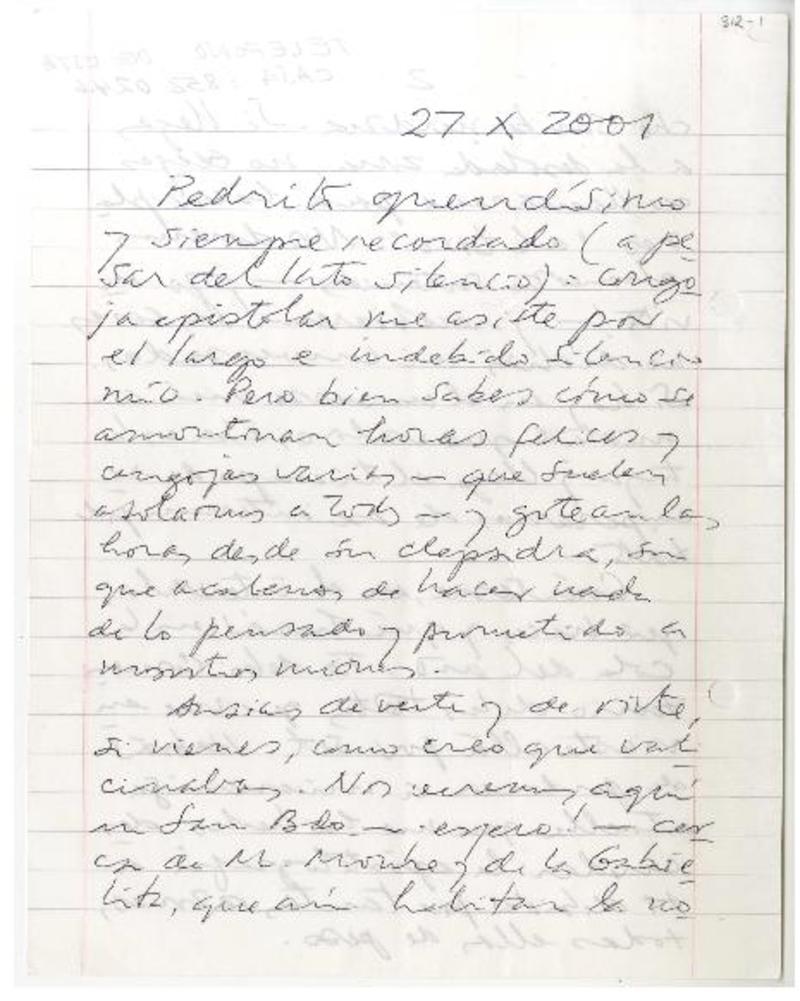 312-1
27 X 2001
Pedrito queridísimo
y siempre recordado (a pe
sar del lato silencio): congo
ja epistolar me asiste por
el largo e indebido silencio
mío. Pero bien sabes cómo se
amontonan horas felices y
congojas varias — que suelen
asolarnos a todos — y gotean las
horas desde su clepsidra, sin
que acabemos de hacer nada
de lo pensado y prometido a
nosotros mismos.
Ansias de verte y de oírte,
si vienes, como creo que vati
cinabas. Nos veremos aquí
en San Bdo — espero! — cer
ca de M. Montes y de la Gabrie
lita, que aún habitan la